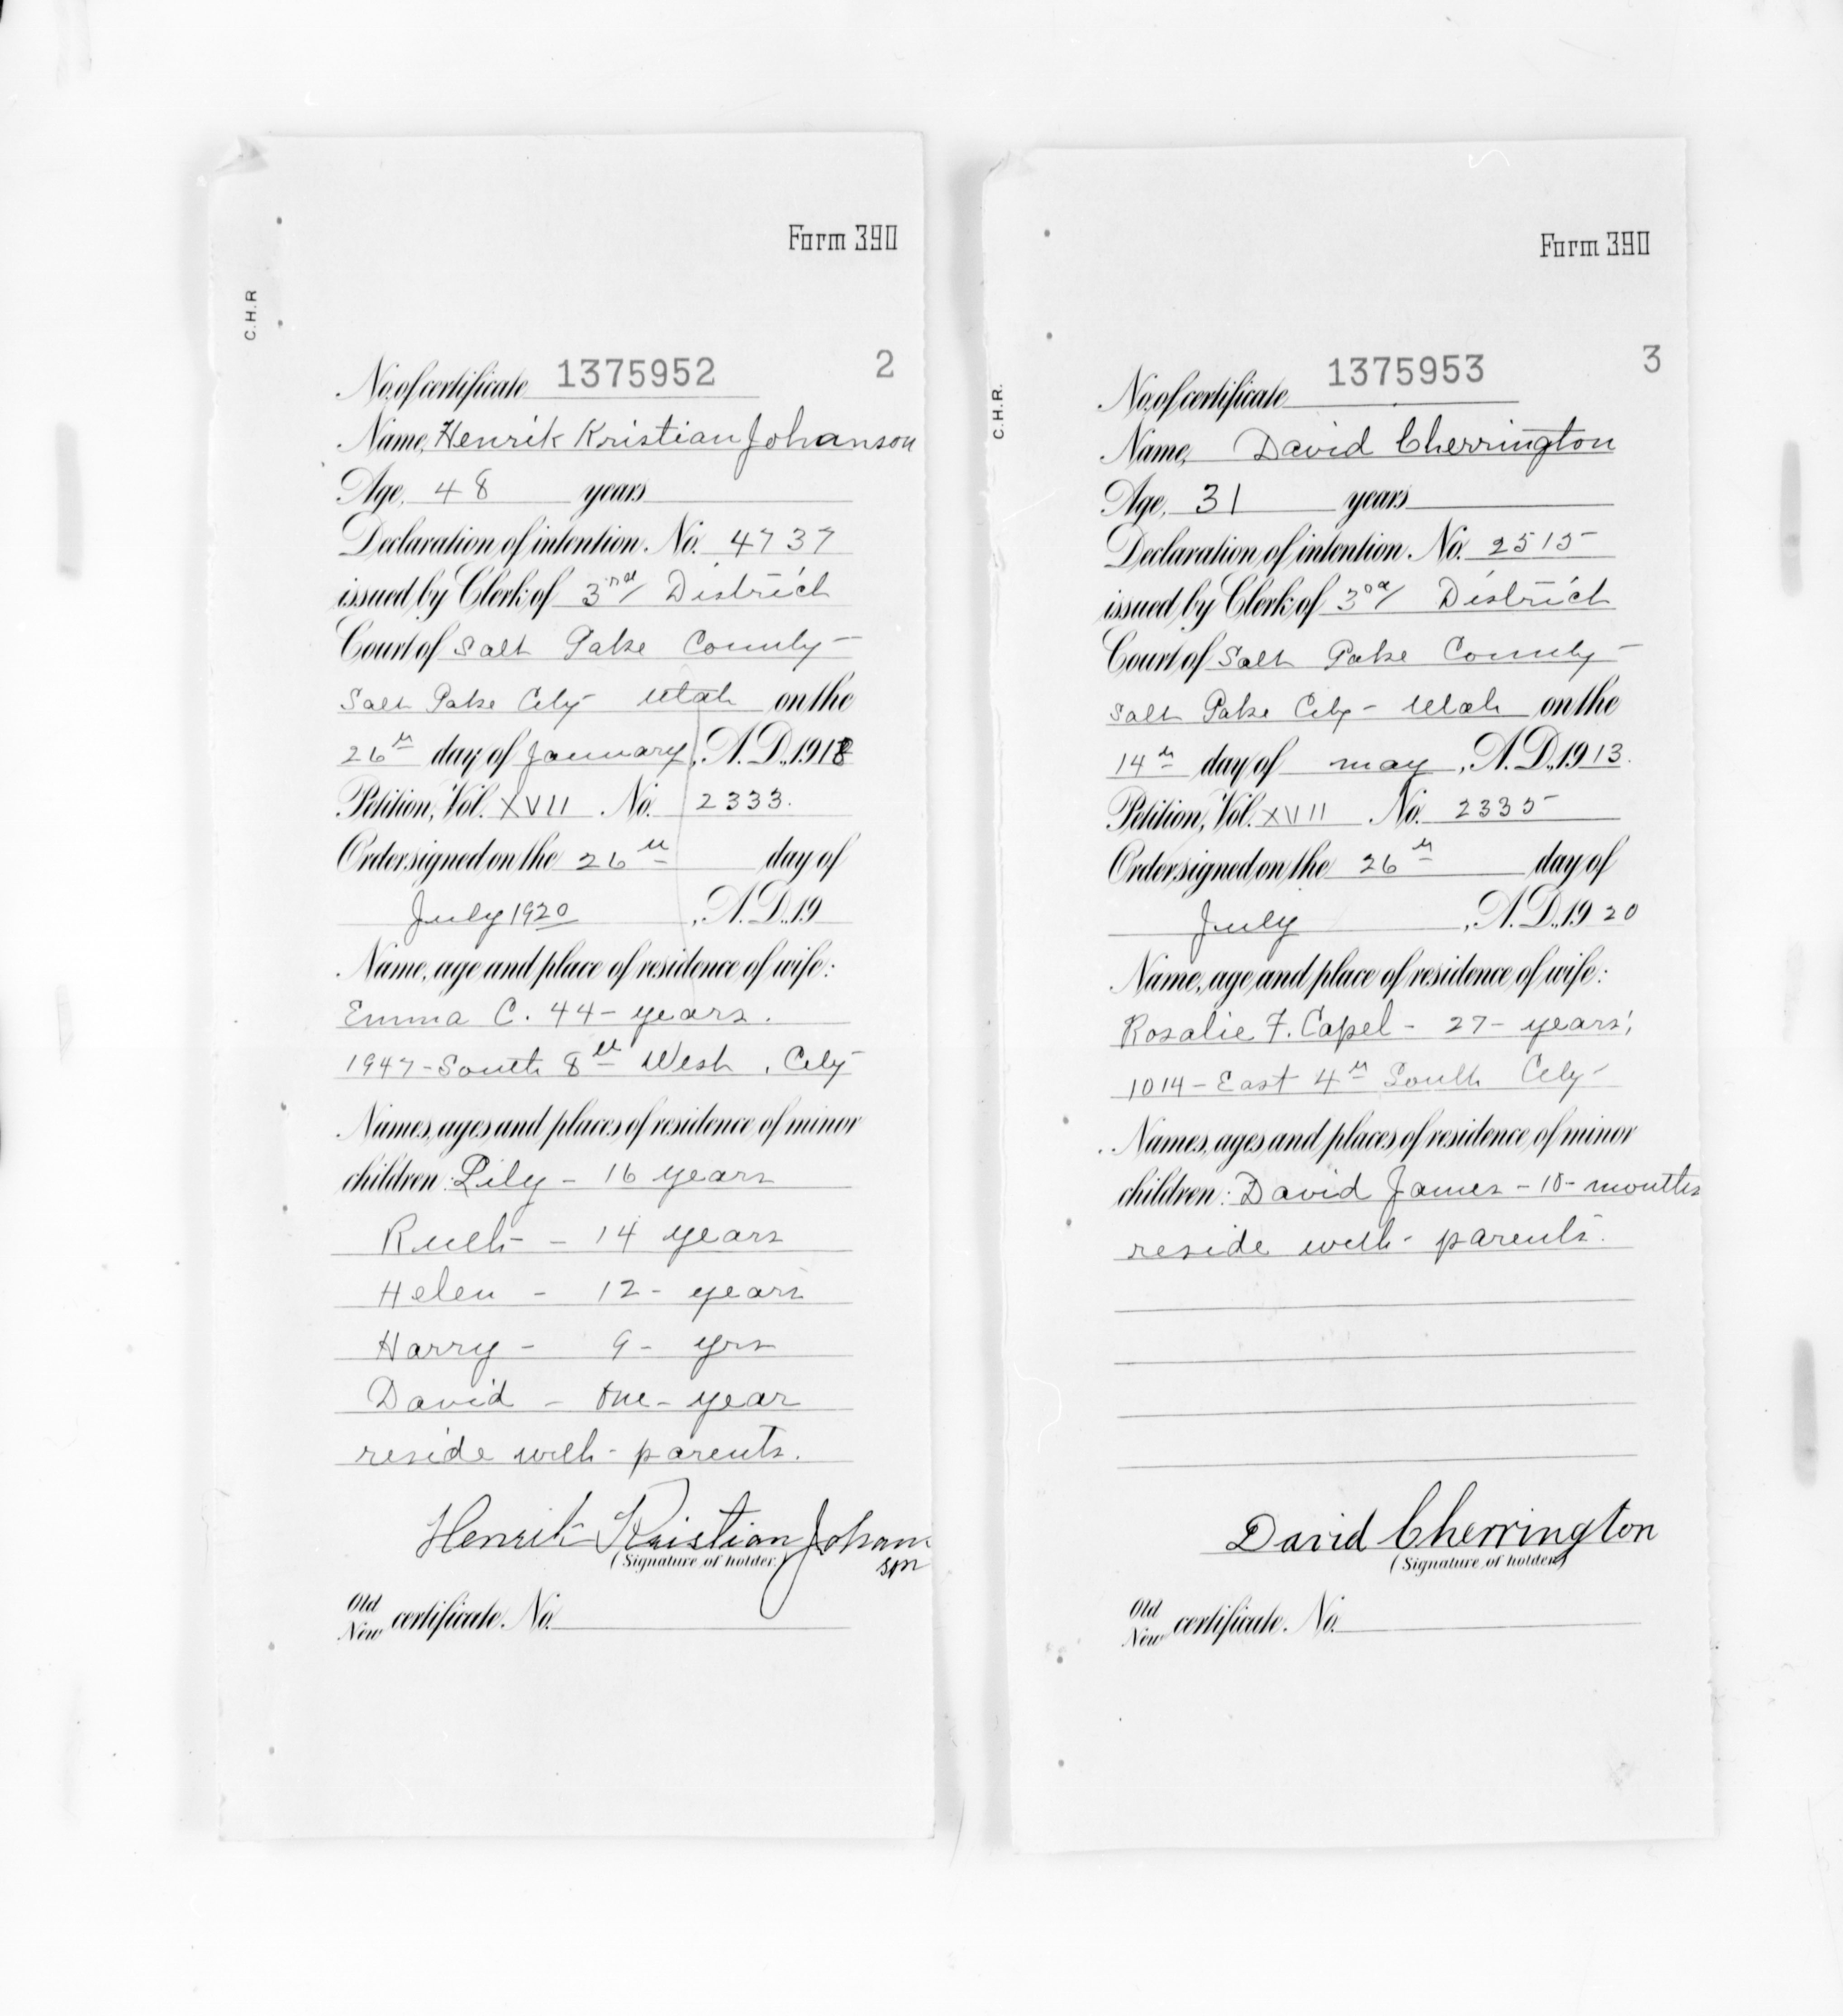 Form 390
C.H.R
No. of certificate 1375952 2
Name, Henrik Kristian Johanson
Age, 48 years
Declaration of intention No. 4737
issued by Clerk of 3rd District
Court of Salt Lake County
Salt Lake City Utah on the
26th day of January, A.D. 1918
Petition, Vol. XVII No. 2333.
Order signed on the 26th day of
July 1920, A.D. 19
Name, age and place of residence of wife:
Emma C. 44 - years.
1947 - South 8th West, City
Names, ages and places of residence of minor
children: Lily - 16 years
Ruth - 14 years
Helen - 12 - years
Harry - 9 - yrs
David - One - year
reside with - parents.
Henrik Kristian Johanson
(Signature of holder)
Old
New certificate No.
Form 390
C.H.R.
No. of certificate 1375953 3
Name, David Cherrington
Age, 31 years
Declaration of intention No. 2515
issued by Clerk of 3rd District
Court of Salt Lake County
Salt Lake City - Utah on the
14th day of May, A.D. 1913.
Petition, Vol. XVII No. 2335
Order signed on the 26th day of
July, A.D. 1920
Name, age and place of residence of wife:
Rosalie F. Capel - 27 - years,
1014 - East 4th South City
Names, ages and places of residence of minor
children: David James - 10 - months
reside with - parents.
David Cherrington
(Signature of holder)
Old
New certificate No.